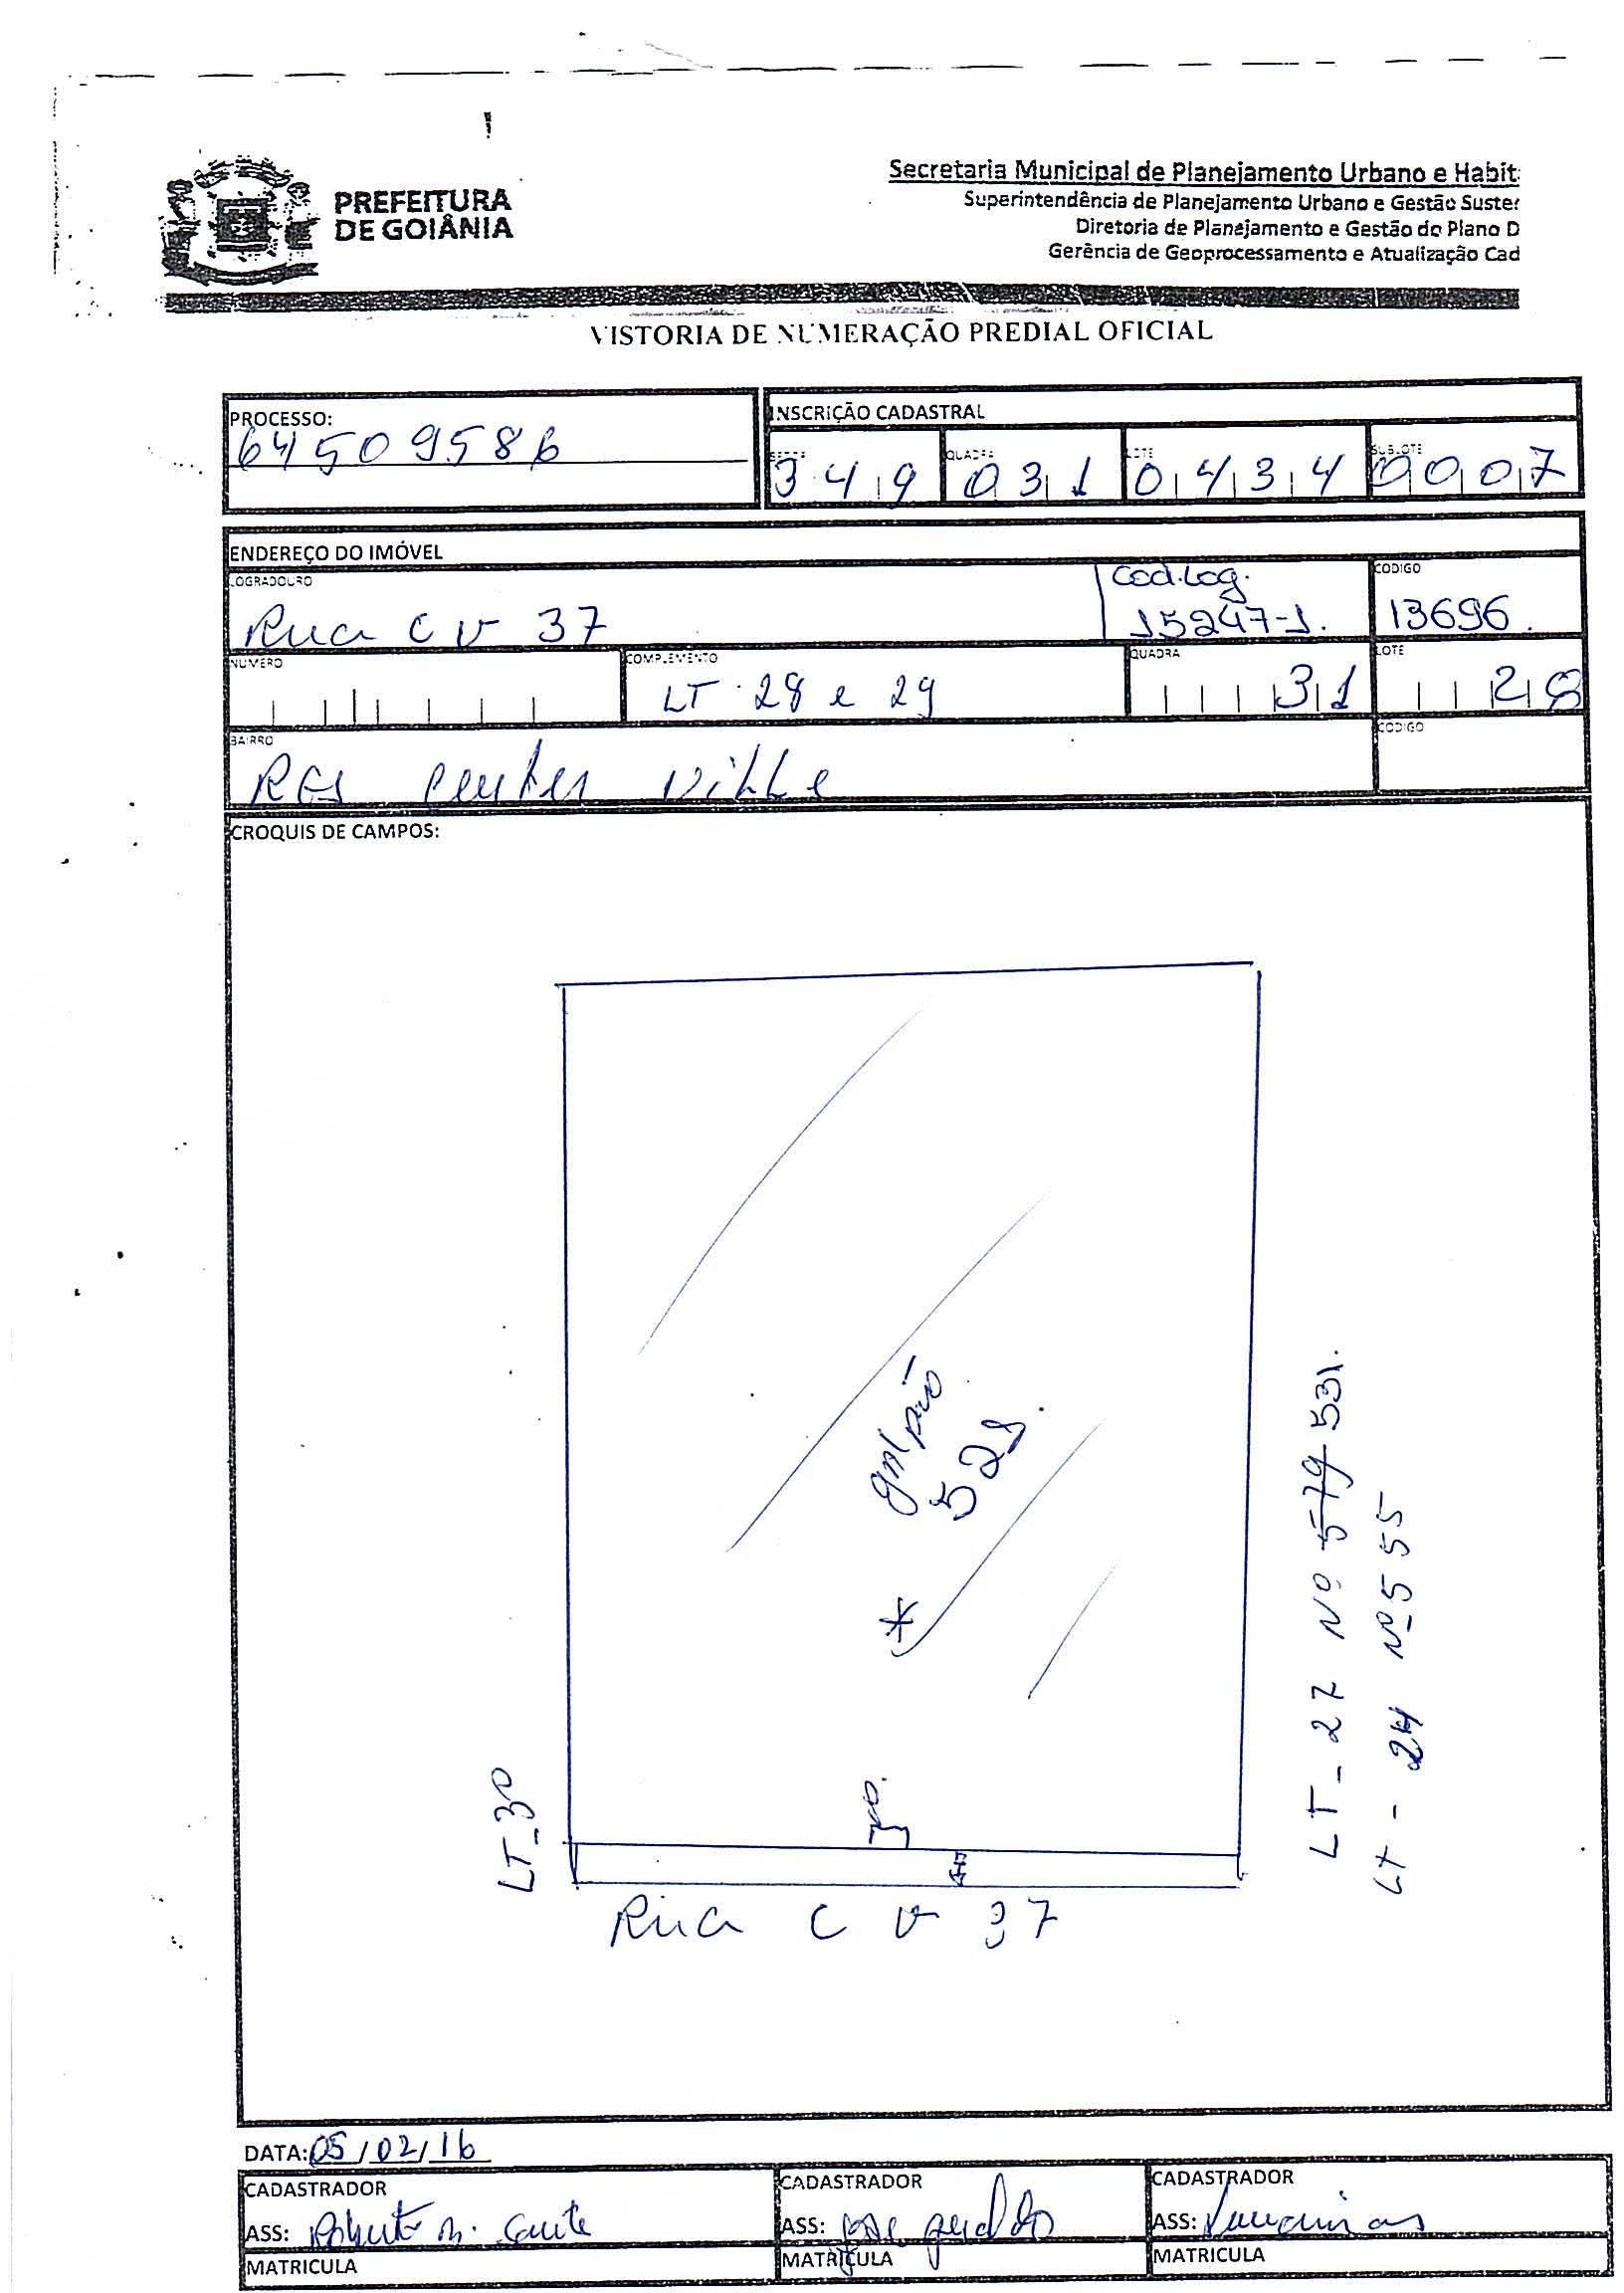 PREFEITURA
DE GOIÂNIA
Secretaria Municipal de Planejamento Urbano e Habit
Superintendência de Planejamento Urbano e Gestão Suster
Diretoria de Planejamento e Gestão do Plano D
Gerência de Geoprocessamento e Atualização Cad
VISTORIA DE NUMERAÇÃO PREDIAL OFICIAL
PROCESSO:
64509586
INSCRIÇÃO CADASTRAL
QUADRA LOTE SUBLOTE
349 031 0434 0007
ENDEREÇO DO IMÓVEL
LOGRADOURO
Rua C V 37
Cod.Log.
15247-1.
CODIGO
13696.
NUMERO
COMPLEMENTO
LT 28 e 29
QUADRA
31
LOTE
28
BAIRRO
Res Center Ville
CODIGO
CROQUIS DE CAMPOS:
galpão
LT_30
LT_27 Nº 579 531.
LT - 24 Nº 555
Rua C V 37
DATA: 05/02/16
CADASTRADOR
ASS: Roberto m.
MATRICULA
CADASTRADOR
ASS: Jose geraldo
MATRICULA
CADASTRADOR
ASS:
MATRICULA